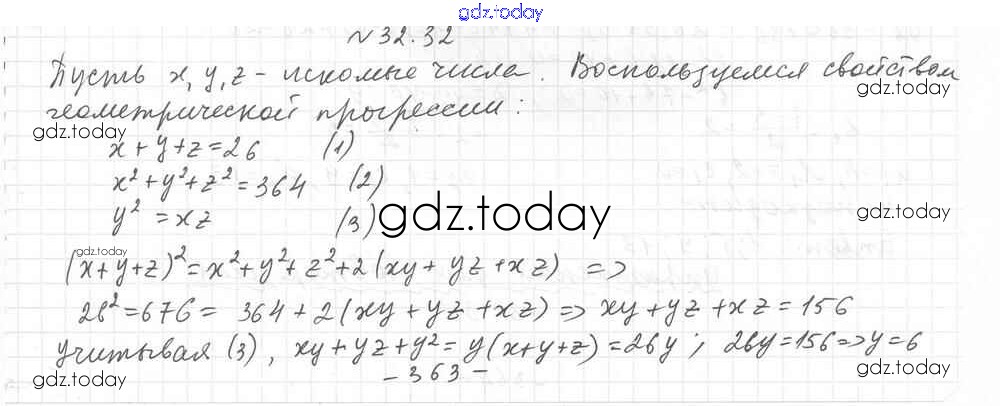 gdz.today
№32.32
Пусть x, y, z - искомые числа. Воспользуемся свойством
gdz.today
геометрической прогрессии:
gdz.today
gdz.today
x+y+z=26 (1)
x²+y²+z²=364 (2)
y²=xz (3)
gdz.today
gdz.today
gdz.today
(x+y+z)²=x²+y²+z²+2(xy+yz+xz) =>
26²=676= 364+2(xy+yz+xz)=> xy+yz+xz=156
gdz.today
gdz.today
Учитывая (3), xy+yz+y²=y(x+y+z)=26y; 26y=156=>y=6
gdz.today
-363-
gdz.today